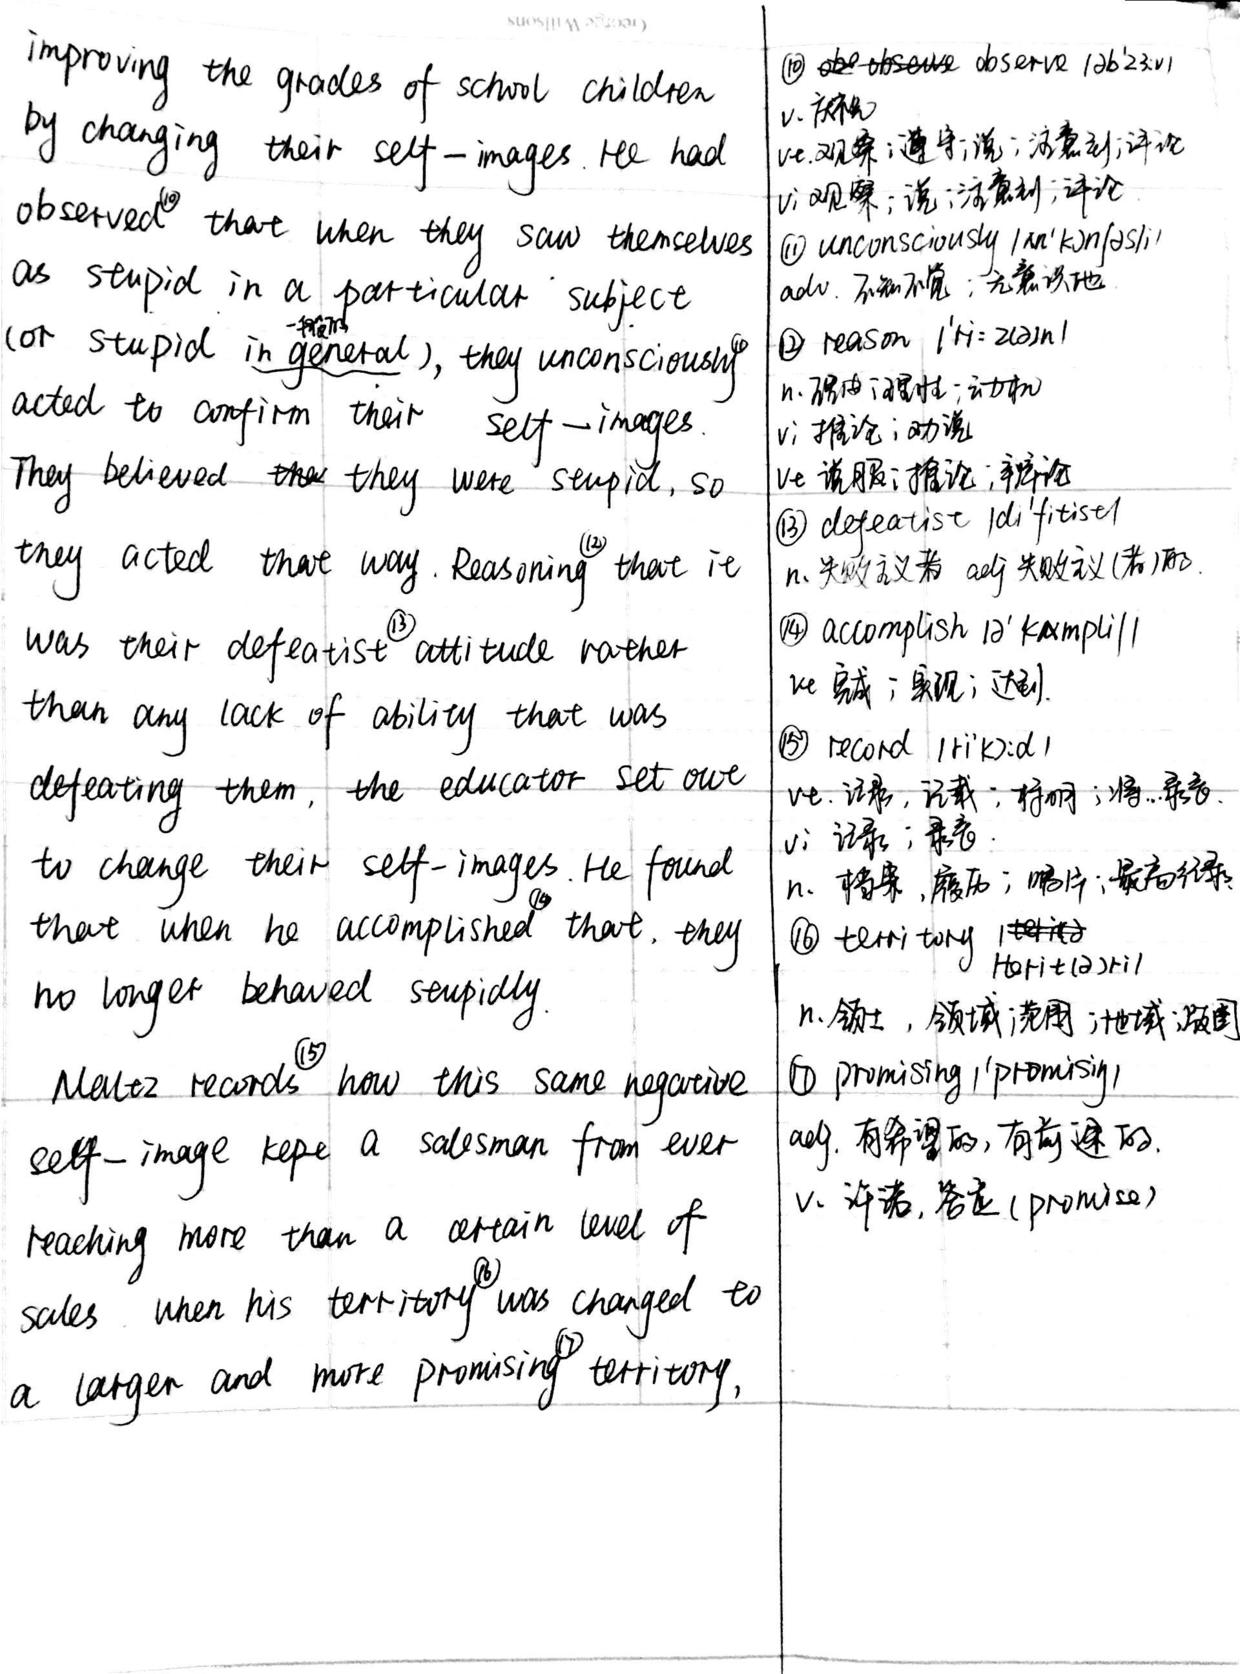 George Willsons
improving the grades of school children
by changing their self-images. He had
observed⑩ that when they saw themselves
as stupid in a particular subject
一般的
(or stupid in general), they unconsciously⑪
acted to confirm their self-images.
They believed they were stupid, so
they acted that way. Reasoning⑫ that it
was their defeatist⑬ attitude rather
than any lack of ability that was
defeating them, the educator set out
to change their self-images. He found
that when he accomplished⑭ that, they
no longer behaved stupidly.
Maltz records⑮ how this same negative
self-image kept a salesman from ever
reaching more than a certain level of
sales. When his territory⑯ was changed to
a larger and more promising⑰ territory,
⑩ observe |əb'zɜ:v|
v. 庆祝
vt. 观察;遵守;说;注意到;评论
vi 观察;说;注意到;评论
⑪ unconsciously |ʌn'kɔnʃəsli|
adv. 不知不觉;无意识地
⑫ reason |'ri:z(ə)n|
n. 理由;理性;动机
vi 推论;劝说
vt 说服;推论;辩论
⑬ defeatist |di'fitist|
n. 失败主义者 adj 失败主义(者)的.
⑭ accomplish |ə'kʌmpliʃ|
vt 完成;实现;达到.
⑮ record |ri'kɔ:d|
vt. 记录,记载;标明;将...录音.
vi 记录;录音.
n. 档案,履历;唱片;最高纪录.
⑯ territory
|terit(ə)ri|
n. 领土,领域;范围;地域;版图
⑰ promising |'promisiŋ|
adj. 有希望的,有前途的.
v. 许诺,答应(promise)